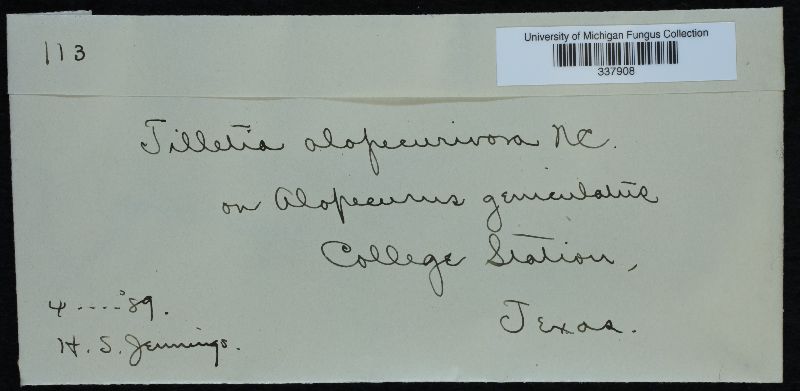 113
University of Michigan Fungus Collection
337908
Tilletia alopecurivora NC.
on Alopecurus geniculatus
College Station,
Texas.
4 ---- '89.
H. S. Jennings.